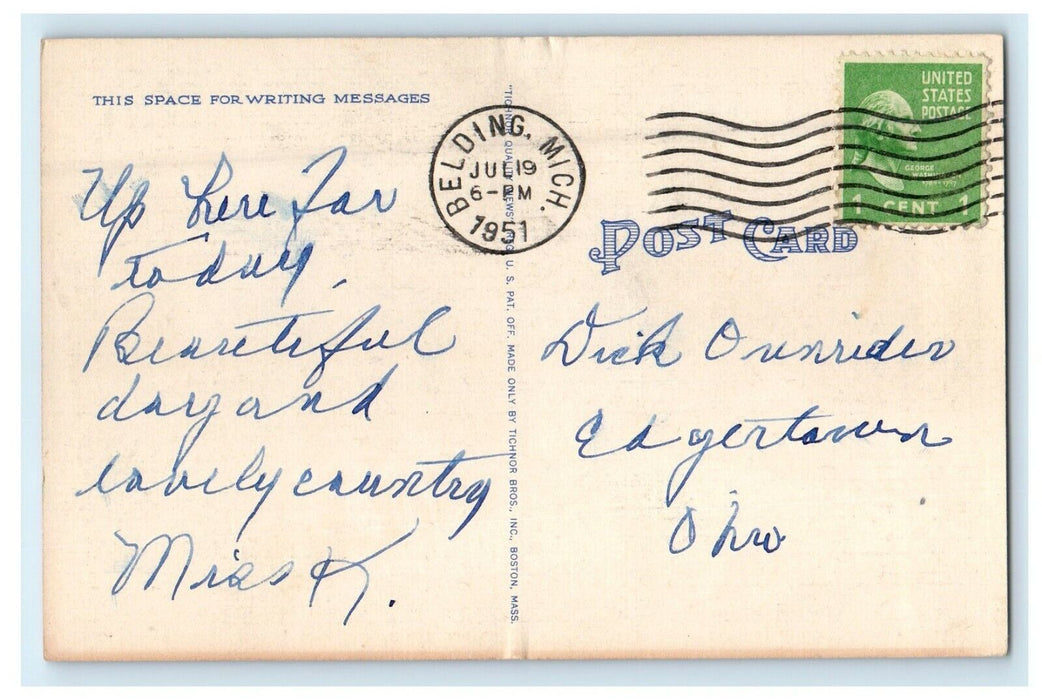 THIS SPACE FOR WRITING MESSAGES
BELDING, MICH.
JUL 19
6-PM
1951
UNITED
STATES
POSTAGE
GEORGE
WASHINGTON
1 CENT 1
POST CARD
Up here for
today.
Beautiful
day and
lovely country
Miss K.
"TICHNOR QUALITY VIEWS" REG. U. S. PAT. OFF. MADE ONLY BY TICHNOR BROS., INC., BOSTON, MASS.
Dick
Edgertown
Ohio